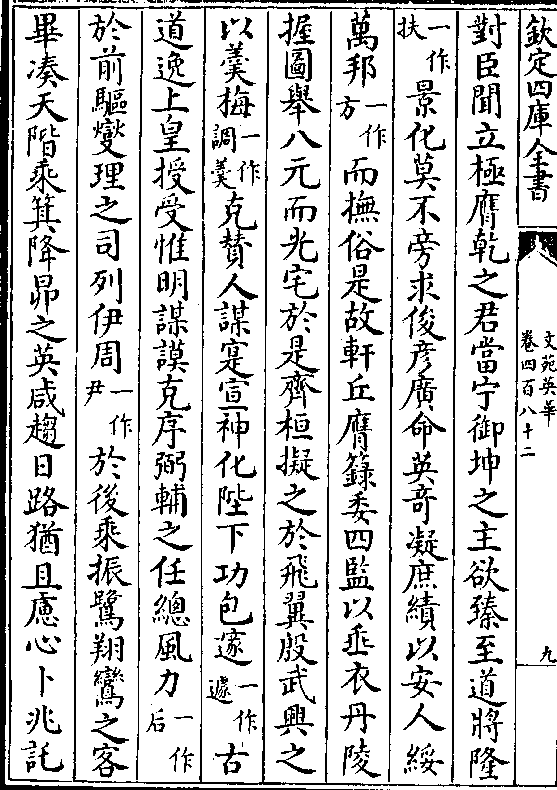 欽定四庫全書
文苑英華
卷四百八十二
九
對臣聞立極膺乾之君當宁御坤之主欲臻至道將隆
一作扶景化莫不旁求俊彦廣命英奇凝庶績以安人綏
萬邦一作方而撫俗是故軒丘膺籙委四監以垂衣丹陵
握圖舉八元而光宅於是齊桓擬之於飛翼殷武興之
以羹梅一作調羹克賛人謀寔宣神化陛下功包邃一作遽古
道逸上皇授受惟明謀謨克序弼輔之任總風力一作后
於前驅燮理之司列伊周一作尹於後乘振鷺翔鸞之客
畢凑天階乘箕降昴之英咸趨日路猶且慮心卜兆託